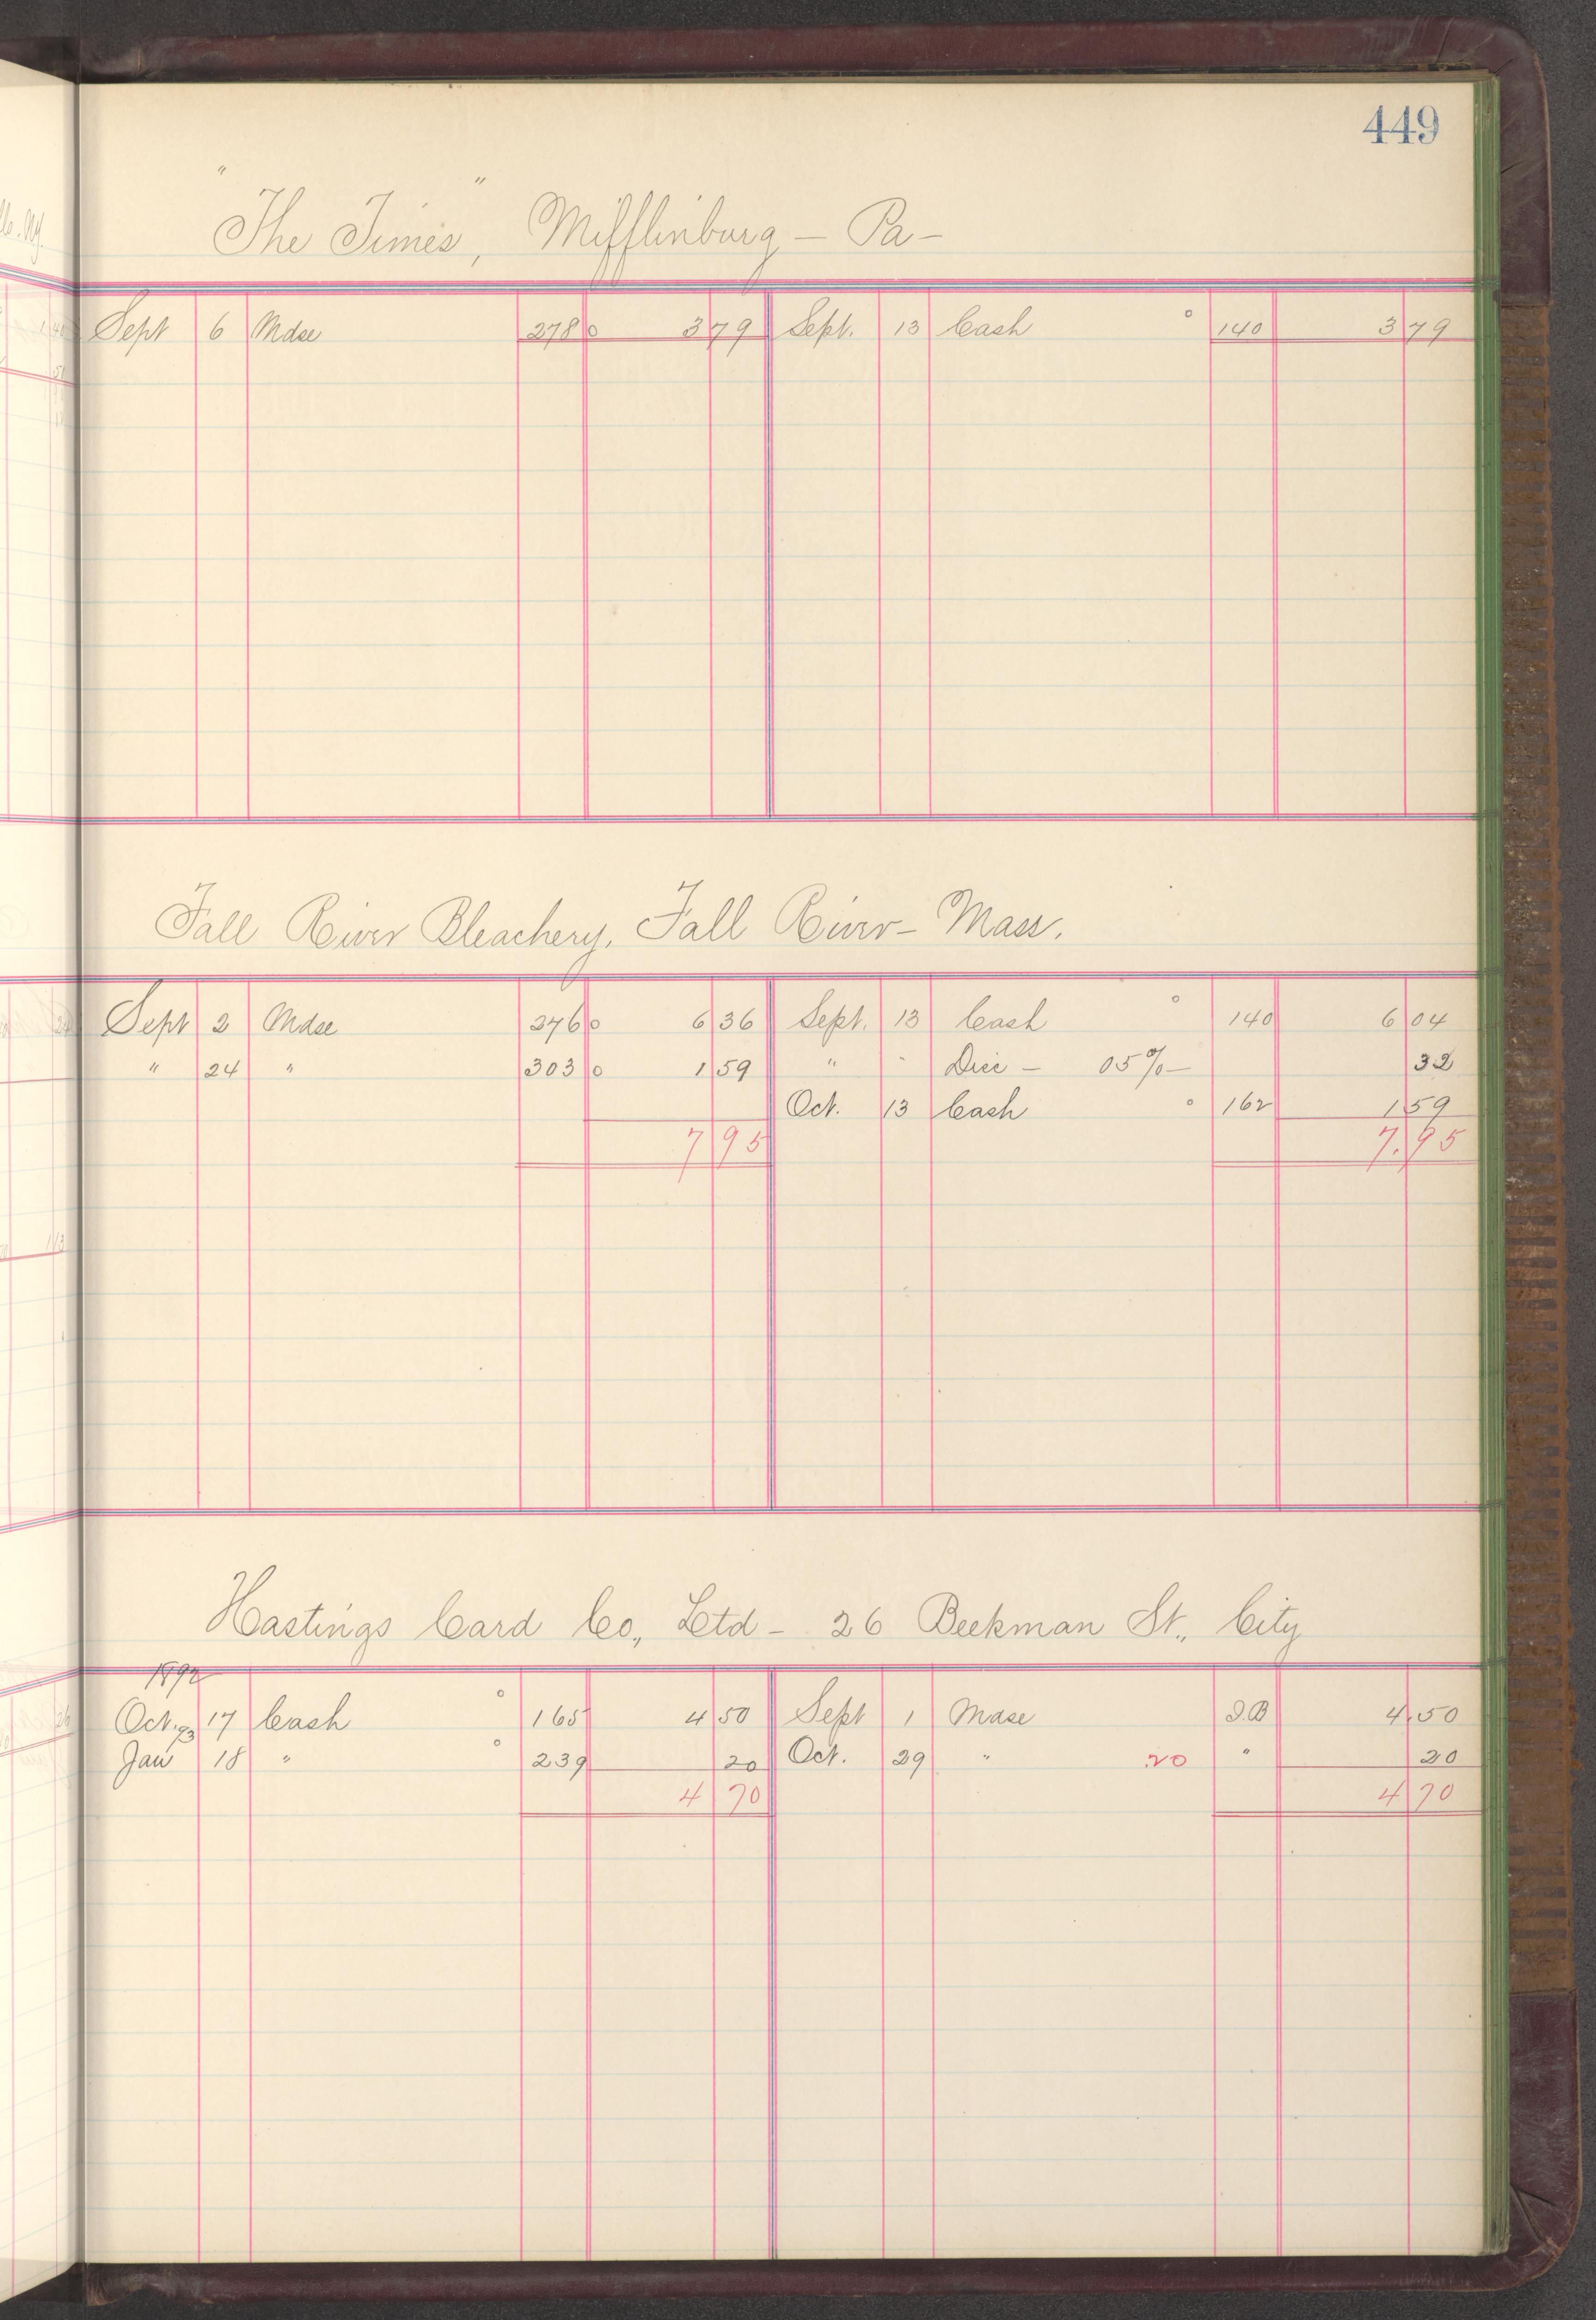 449
"The Times", Mifflinburg - Pa -
Sept 6 Mdse 278 0 3 79 Sept. 13 Cash ° 140 3 79
Fall River Bleachery, Fall River - Mass.
Sept 2 Mdse 276 0 6 36 Sept. 13 Cash ° 140 6 04
" 24 " 303 0 1 59 " " Disc - 05% - 32
Oct. 13 Cash ° 162 1 59
7 95 7.95
Hastings Card Co., Ltd - 26 Beekman St., City
1892
Oct. 17 Cash ° 165 4 50 Sept 1 Mdse I.B 4.50
93
Jan 18 " ° 239 20 Oct. 29 " .20 " 20
4 70 4 70